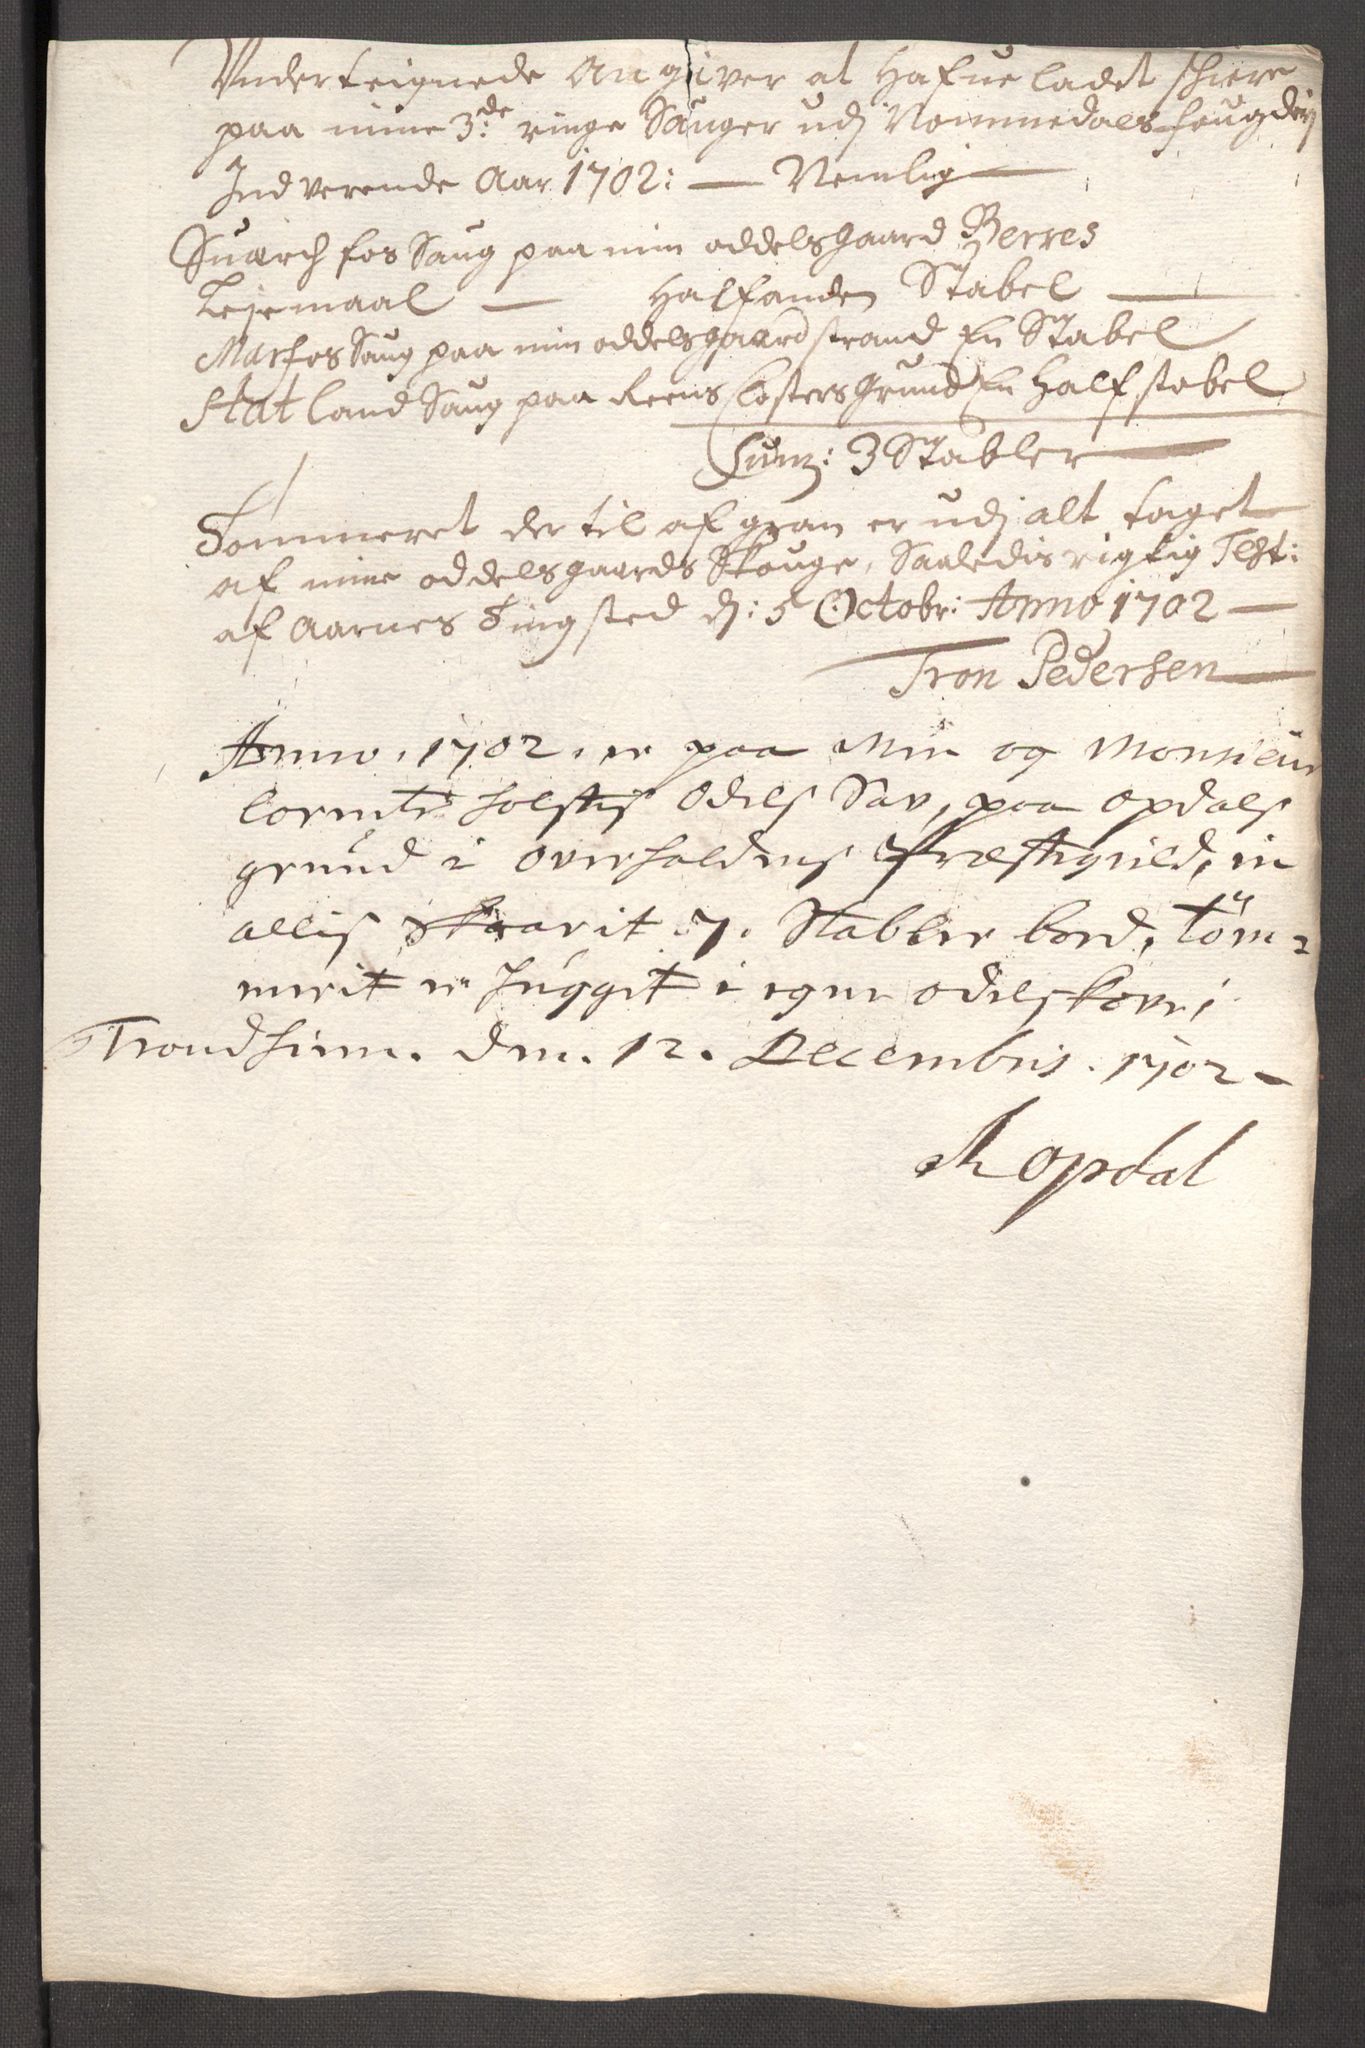 Underteignede Angiver at Hafue ladet schiere
paa mine 3de ringe Sauger udj Nommedals fougderj
Indverende Aar 1702: — Nemlig —
Suarch fos Saug paa min oddelsgaard Berres
Lejemaal — Halfanden Stabel —
Marfos Saug paa min oddelsgaard strand En Stabel
Statland Saug paa Reens Closters Grund En Half stabel
Sum: 3 Stabler —
Tommeret der til af gran er udj alt taget
af mine oddelsgaards Skouge, Saaledis rigtig Test:
af Aarnes Tingsted d: 5 Octobr: Anno 1702 —
Tron Pedersen
Anno. 1702. er paa Min og Monsieur
Cornitz Holstis Odels Sav, paa Opdals
grund i Overhaldens Præstegield, in
allis Skaarit 7. Stabler bord, töm-
merit er Hugget i egne odelskove;
Trondhiem. den. 12. Decembris. 1702 -
Opdal